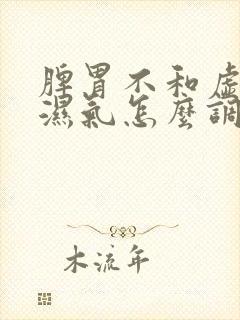 脾胃不和虛
濕氣怎麼調
木流年